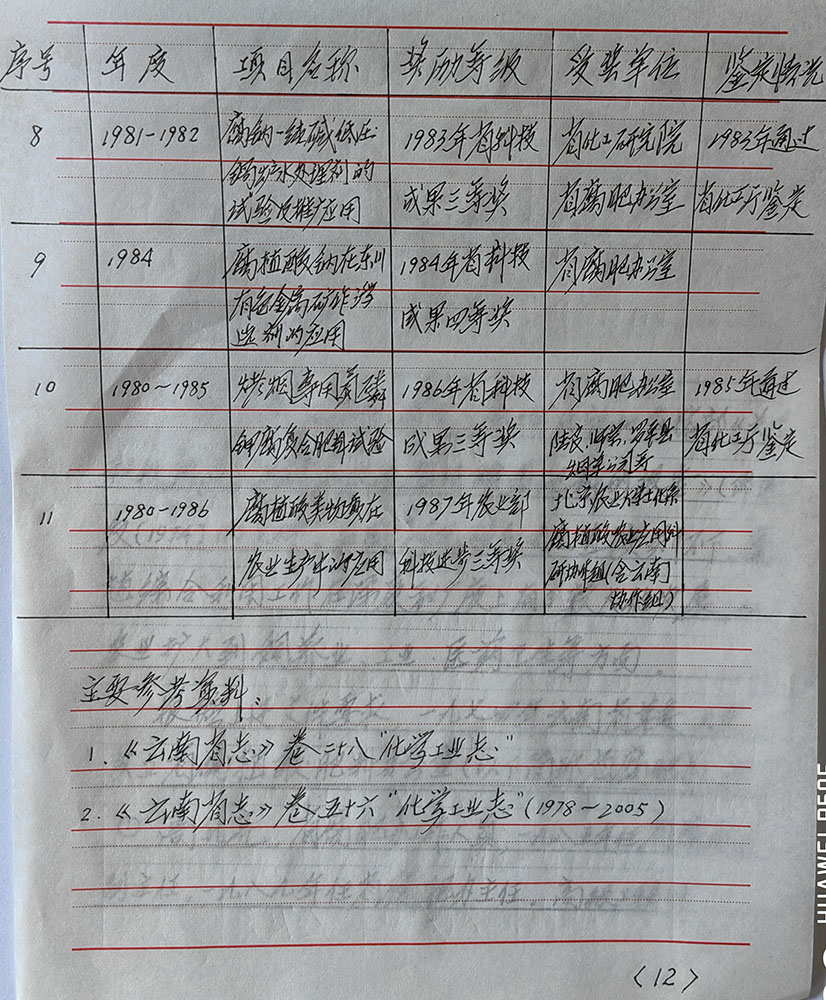 序号 年度 项目名称 奖励等级 受奖单位 鉴定情况
8 1981-1982 腐钠-纯碱低压 1983年省科技 省化工研究院 1983年通过
锅炉水处理剂的
成果三等奖 省腐肥办公室 省化工厅鉴定
试验及推广应用
9 1984 腐植酸钠在东川 1984年省科技 省腐肥办公室
有色金属矿作浮
成果四等奖
选剂的应用
10 1980~1985 烤烟专用氮磷 1986年省科技 省腐肥办公室 1985年通过
钾腐复合肥料试验 成果三等奖 陆良、师宗、罗平县 省化工厅鉴定
烟草公司等
11 1980-1986 腐植酸类物质在 1987年农业部 北京农业大学土化系
农业生产中的应用 科技进步三等奖 腐植酸农业应用科
研协作组(含云南
协作组)
主要参考资料:
1. 《云南省志》卷二十八"化学工业志"
2. 《云南省志》卷五十六"化学工业志"(1978~2005)
〈12〉